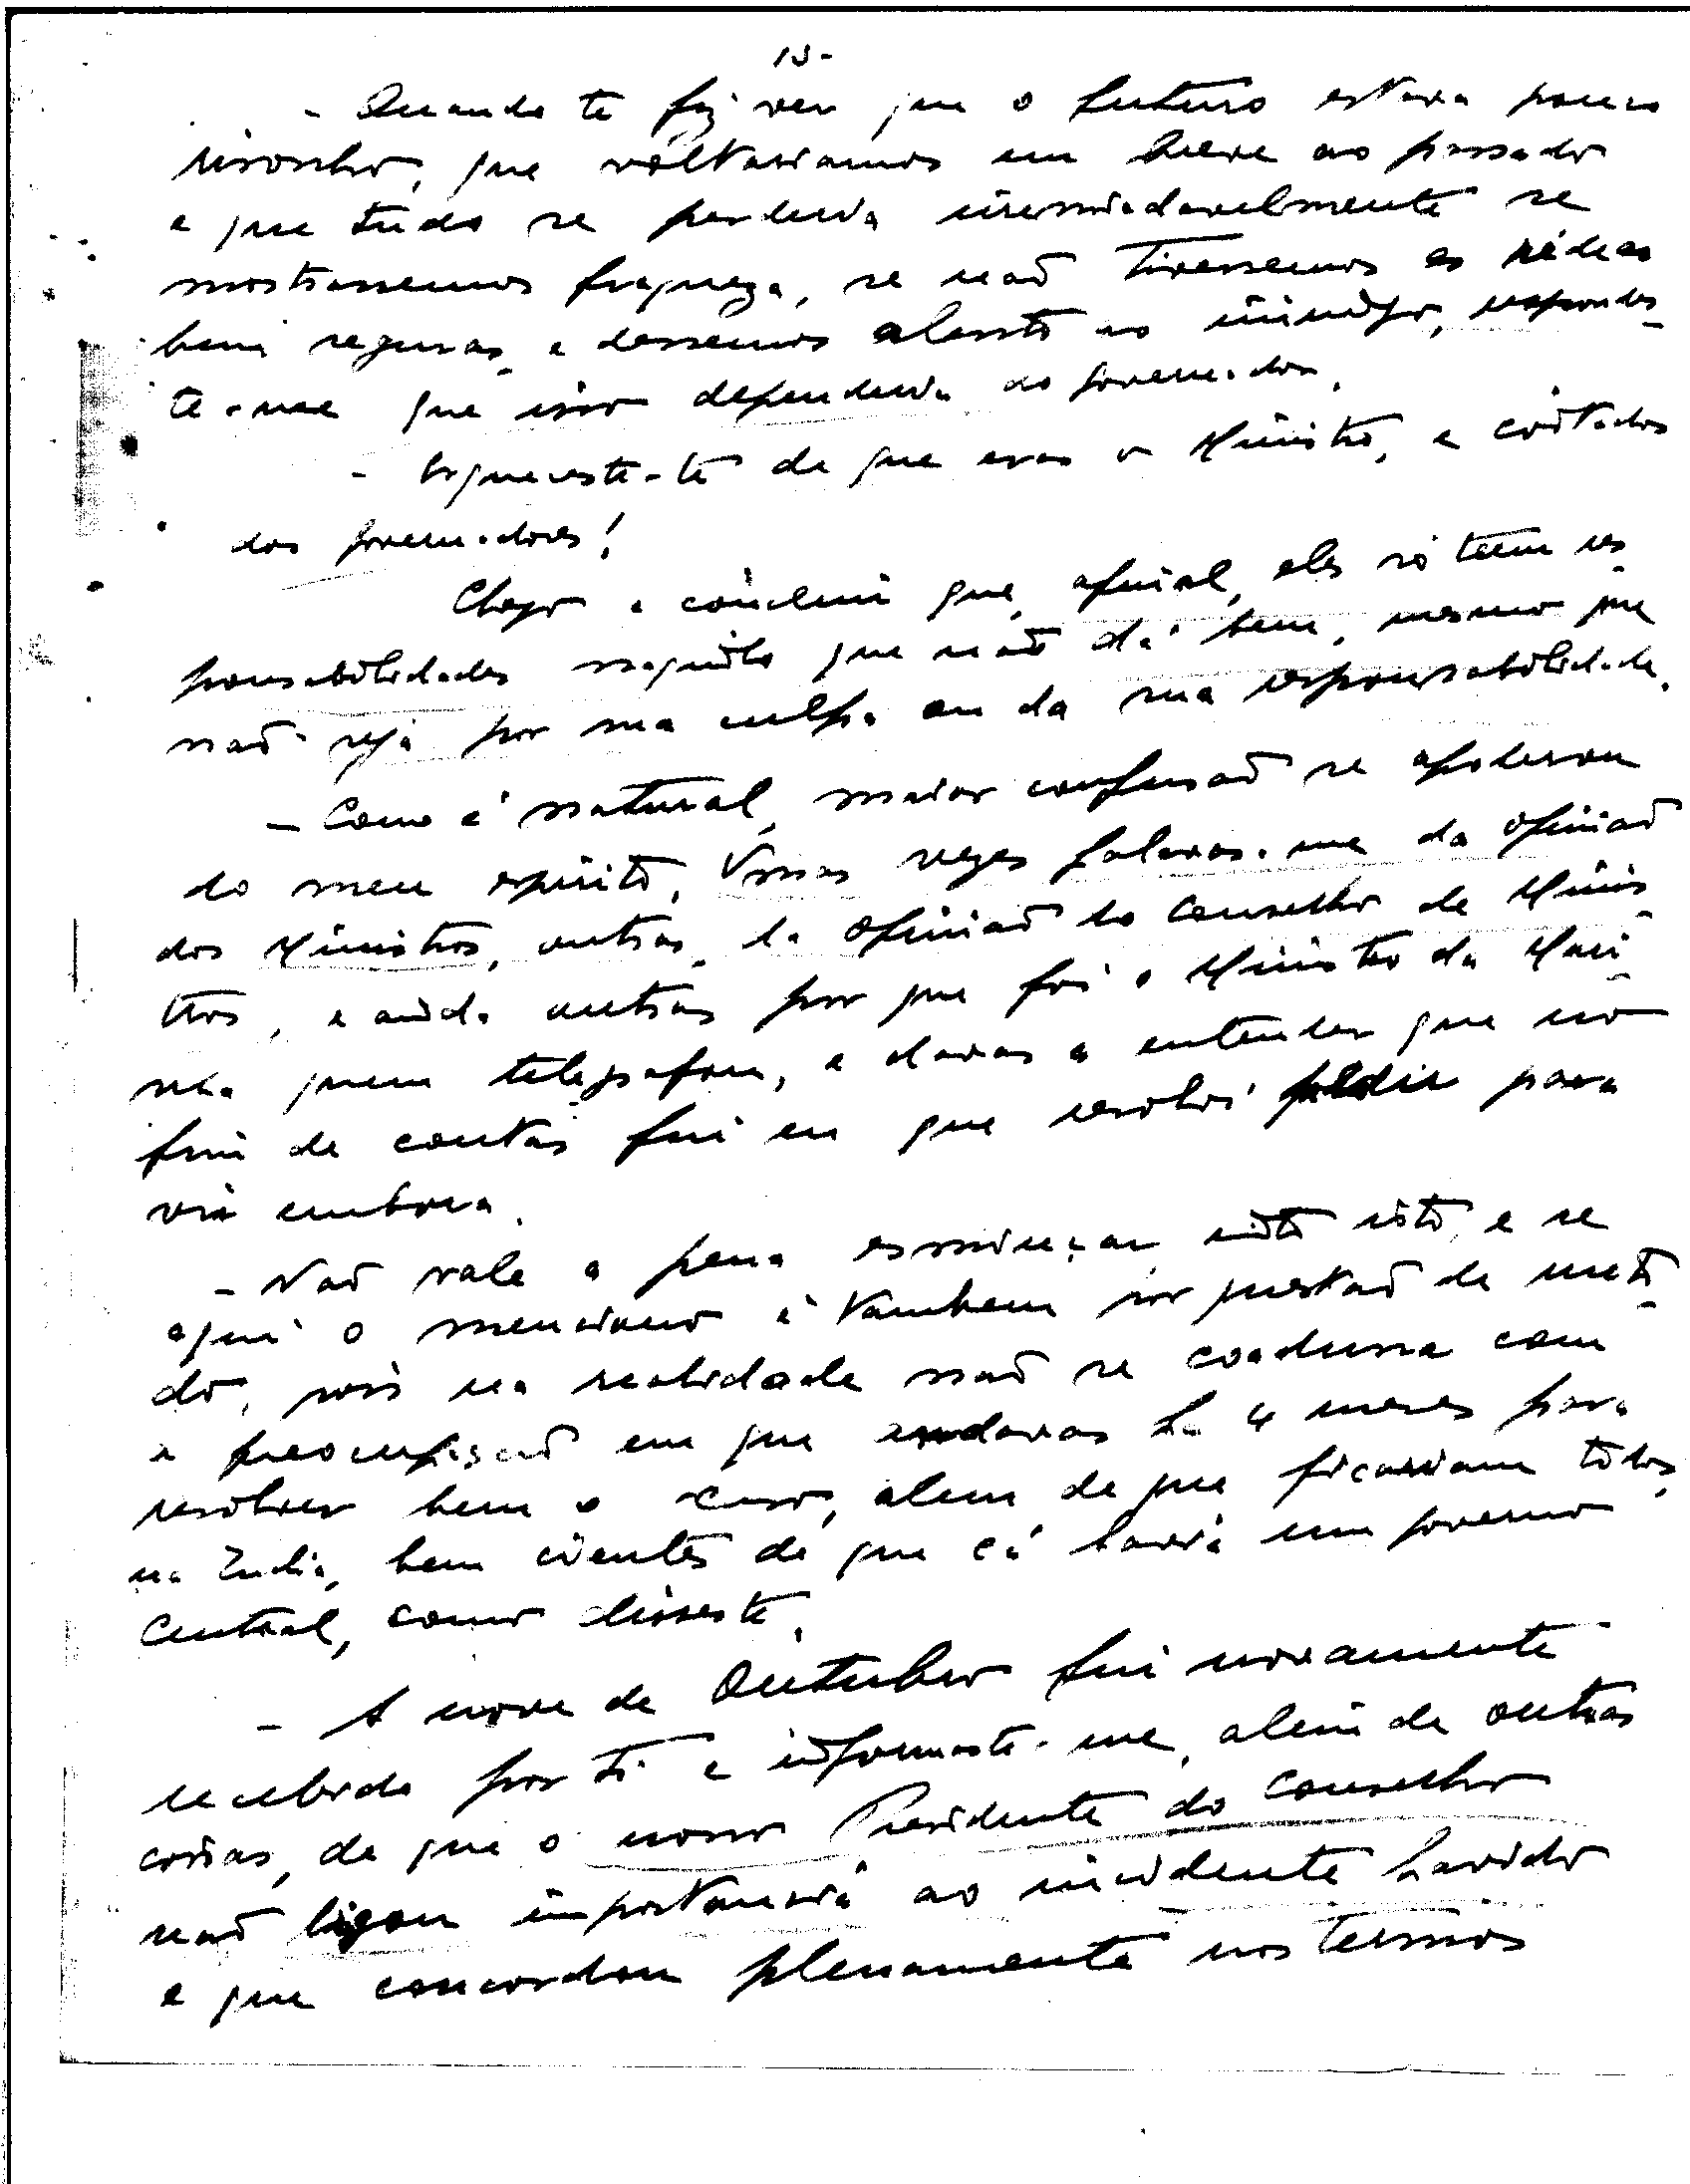 - Quando te fiz ver que o futuro estava pouco
risonho, que voltariamos em breve ao passado
e que tudo se perderia irremediavelmente se
mostrassemos fraqueza, se não tivessemos as rédeas
bem seguras, e dessemos alento ao inimigo, respondes-
te-me que isso dependeria do governador.
- Esqueceste-te de que eras o Ministro, e coitados
dos governadores!
Chego a concluir que, afinal, eles só teem res-
ponsabilidades naquilo que não dá bem, mesmo que
não seja por sua culpa ou da sua responsabilidade.
- Como é natural, maior confusão se apoderou
do meu espirito. Umas vezes falavas-me da opinião
dos Ministros, outras, da opinião do Conselho de Minis-
tros, e ainda outras por que foi o Ministro da Mari-
nha quem telegrafou, e davas a entender que no
fim de contas fui eu que resolvi pedir para
vir embora.
- Não vale a pena esmiuçar isto, e se
aqui o menciono é tambem por questão de meto-
do, pois na realidade não se coaduna com
a preocupação em que andavas ha 4 meses para
resolver bem o caso, alem de que ficariam todos,
na India, bem cientes de que cá havia um governo
central, como disseste.
- A nove de Outubro fui novamente
recebido por ti e informaste-me, alem de outras
coisas, de que o nosso Presidente do Conselho
não ligou importancia ao incidente havido
e que concordou plenamente nos termos